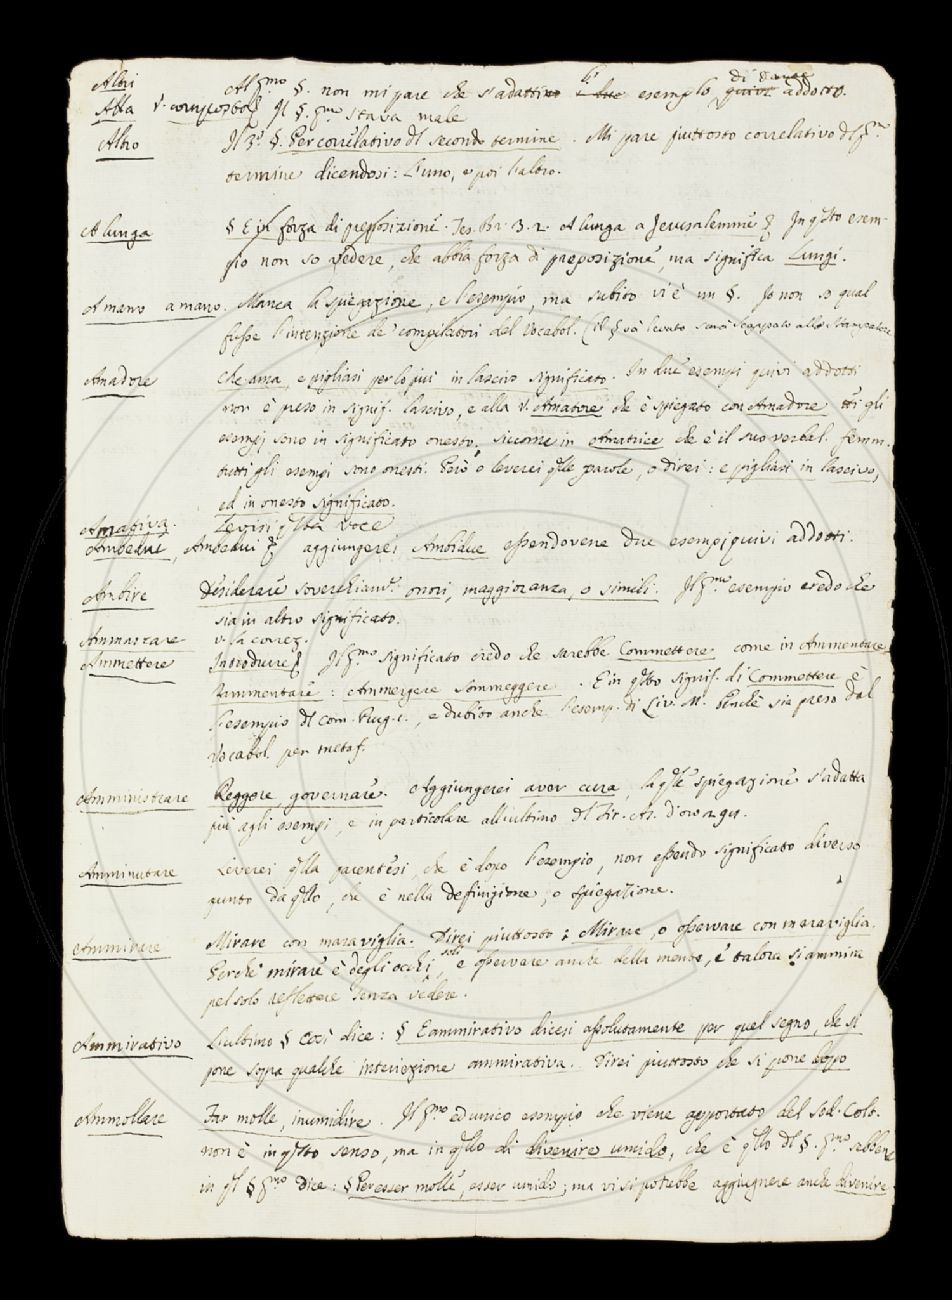 Altri Al p.mo §. non mi pare che s'adattino l' esempio di Dante addotto.
Alta V. composto Il §. p.mo stava male
Altro Il 3.° §. Per correlativo dl secondo termine. Mi pare piuttosto correlativo dl p.mo
termine dicendosi: L'uno, e poi l'altro.
A lunga § E in forza di preposizione. Tes. Br. 3. 2. A lunga a Jerusalemme. In qsto esem-
pio non so vedere, che abbia forza di preposizione, ma significa Lungi.
A mano a mano. Manca la spiegazione, e l'esempio, ma subito vi è un §. Io non so qual
fusse l'intenzione de' compilatori del Vocabol. (il § va levato sarà scappato allo Stampatore
Amadore Che ama, e pigliasi per lo più in lascivo significato. In due esempi quivi addotti
non è preso in signif. lascivo, e alla V. Amatore che è spiegato con Amadore tti gli
esempj sono in significato onesto, siccome in Amatrice che è il suo verbal. femm.
tutti gli esempi sono onesti. Però o leverei qlle parole, o direi: e pigliasi in lascivo,
ed in onesto significato.
Amativa. Levisi qsta voce
Ambedui, Ambedui aggiungerei Ambidue essendovene due esempi quivi addotti.
Ambire Desiderare soverchiam.te onori, maggioranza, o simili. Il p.mo esempio credo che
sia in altro significato.
Ammazzare v. la correz.
Ammettere Introdurre Il p.mo significato credo che sarebbe Commettere come in Ammentare
Rammentare: Ammergere Sommeggere. E in qsto signif. di Commettere è
l'esempio dl Com. Purg. 1., e dubito anche l'esemp. di Liv. M. benchè sia preso dal
Vocabol. per metaf.
Amministrare Reggere, governare. Aggiungerei aver cura, la qle spiegazione s'adatta
più agli esempi, e in particolare all'ultimo dl Fir. As. d'oro 291.
Amminutare Leverei qlla parentesi, che è dopo l'esempio, non essendo significato diverso
punto da qllo, che è nella definizione, o spiegazione.
Ammirare Mirare con maraviglia. Direi piuttosto: Mirare, o osservare con maraviglia.
Perchè mirare è degli occhi soli, e osservare anche della mente, e talora si ammira
pel solo riflettere senza vedere.
Ammirativo L'ultimo § così dice: § E ammirativo dicesi assolutamente per quel segno, che si
pone sopra qualche interiezione ammirativa. Direi piuttosto che si pone dopo
Ammollare Far molle, inumidire. Il p.mo ed unico esempio che viene apportato del Sod. Colt.
non è in qsto senso, ma in qllo di divenire umido, che è qllo dl §. p.mo sebbene
in ql § p.mo dice: § Per esser molle, esser umido; ma vi si potrebbe aggiugnere anche divenire